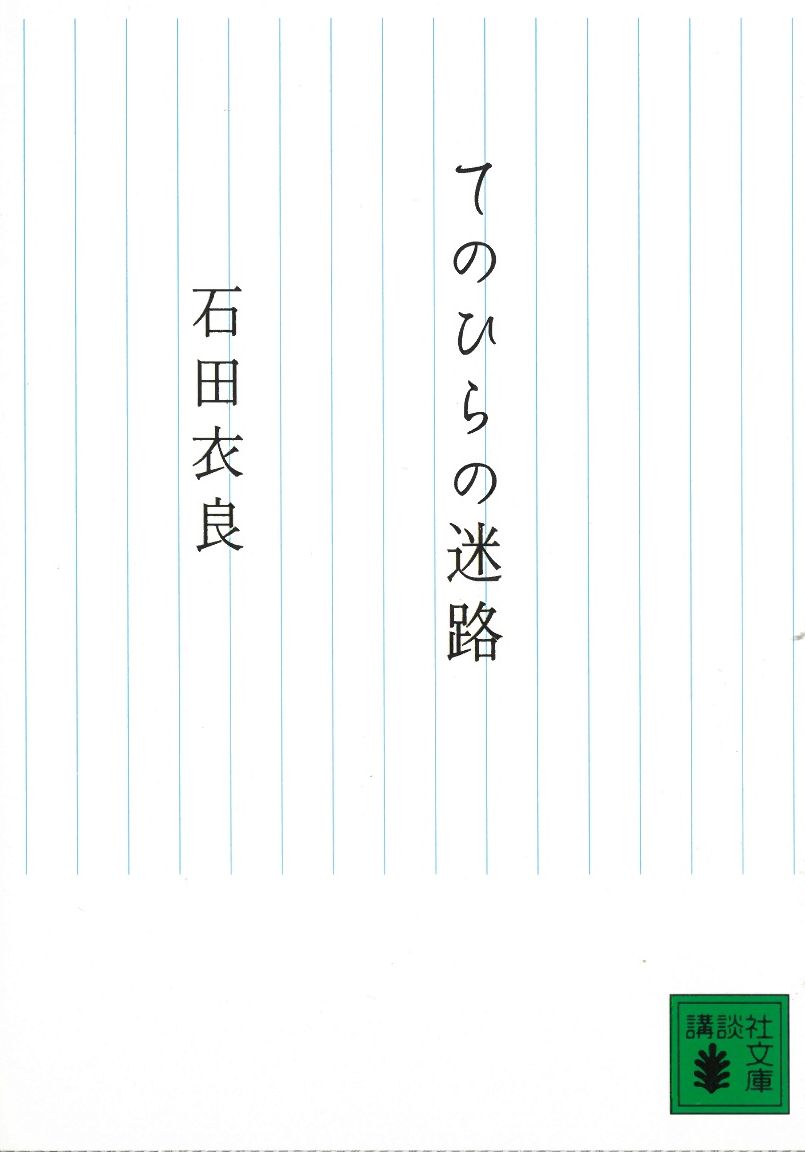 てのひらの迷路
石田衣良
講談社
文庫